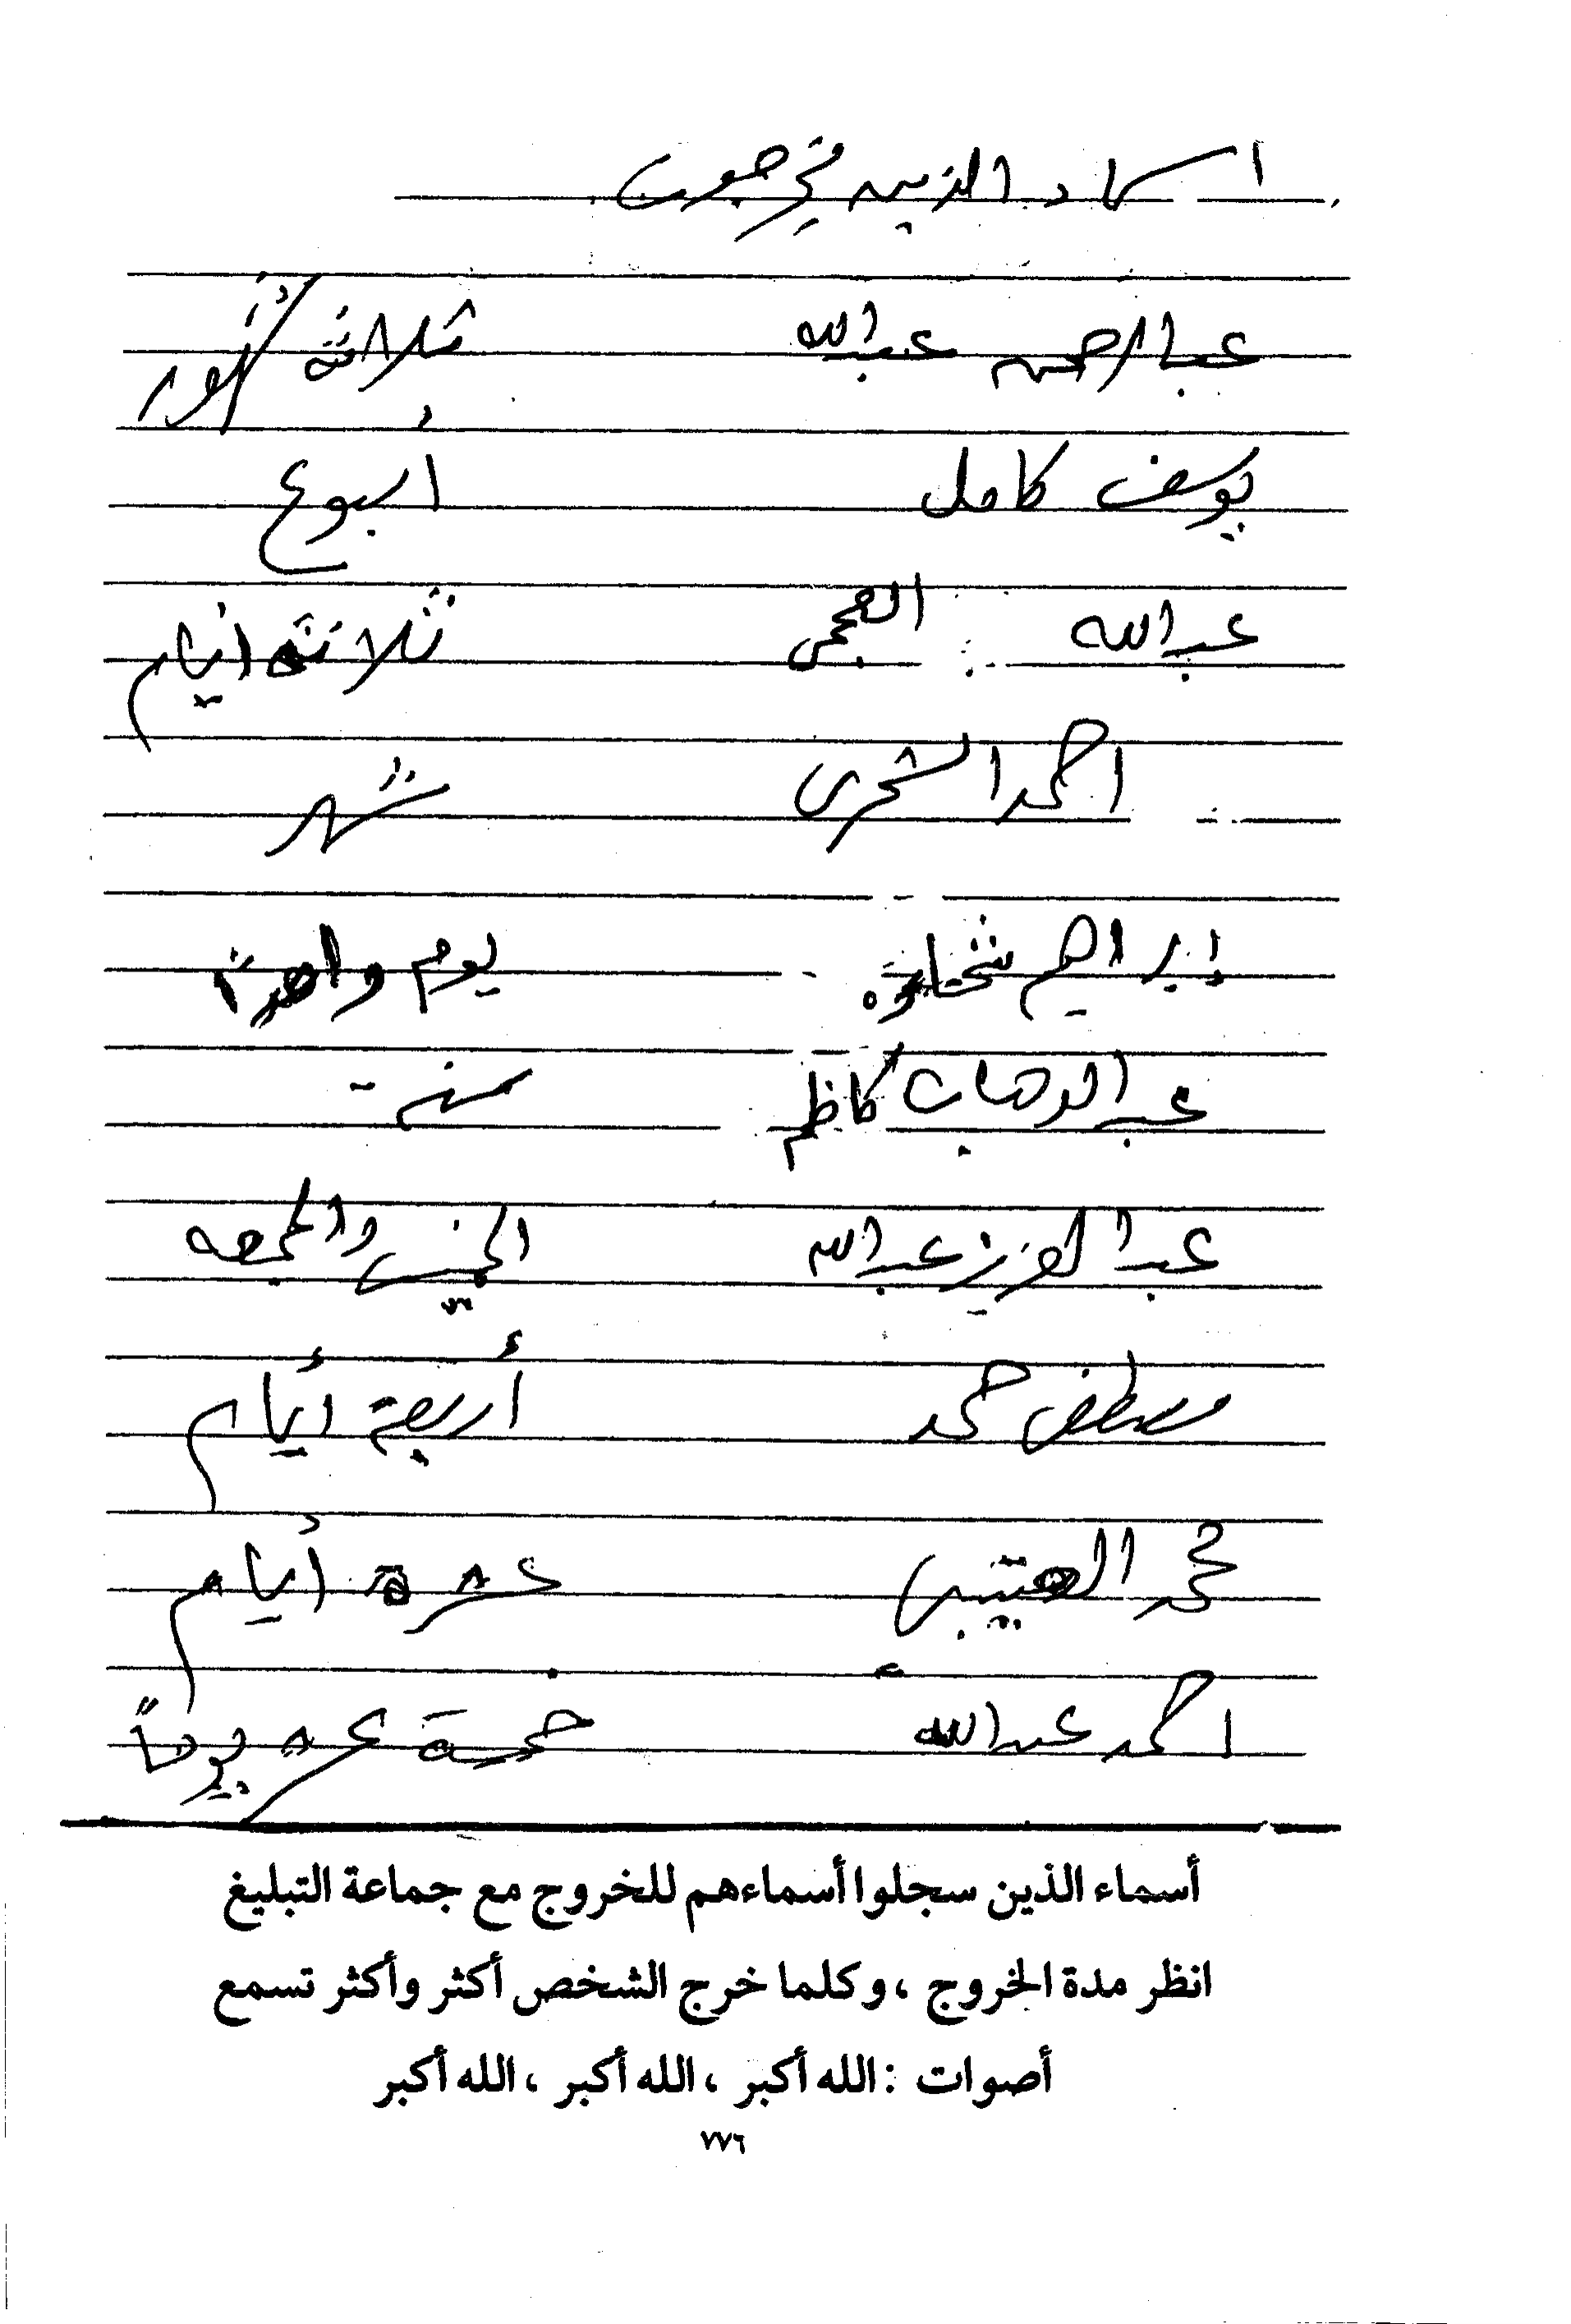 اسماء الذين يخرجون
عبد الرحمن عبدالله ثلاثة شهور
يوسف كامل اسبوع
عبدالله العجمي ثلاثة ايام
احمد الشحري شهر
إبراهيم يوم واحد
عبد الوهاب كاظم سنة
عبد العزيز عبدالله الخميس والجمعه
مصطفى حمد أربعة أيام
محمد العتيبي عشرة أيام
احمد عبدالله خمسة عشر يوماً
أسماء الذين سجلوا أسماءهم للخروج مع جماعة التبليغ
انظر مدة الخروج ، وكلما خرج الشخص أكثر وأكثر تسمع
أصوات : الله أكبر ، الله أكبر ، الله أكبر
٧٧٦